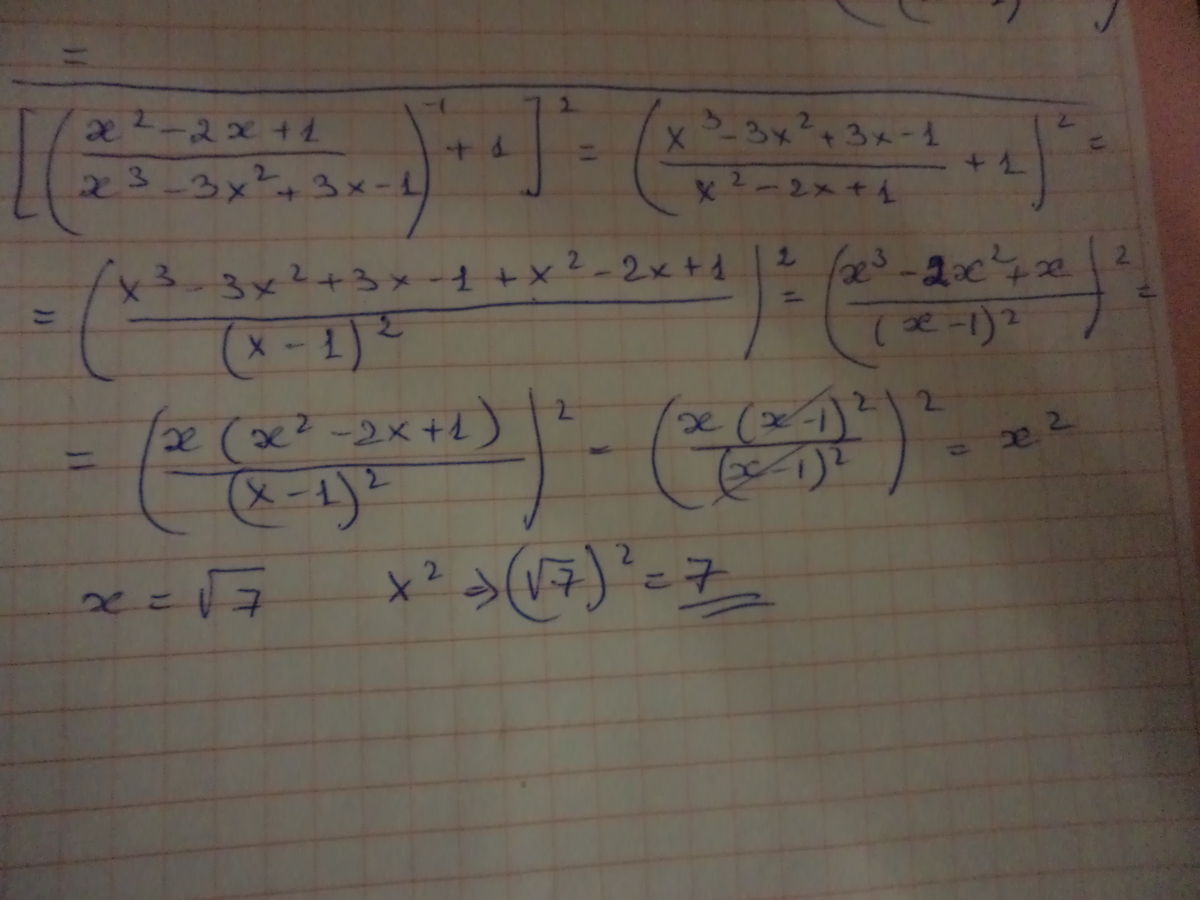 =
[((x² - 2x + 1)/(x³ - 3x² + 3x - 1))⁻¹ + 1]² = ((x³ - 3x² + 3x - 1)/(x² - 2x + 1) + 1)² =
= ((x³ - 3x² + 3x - 1 + x² - 2x + 1)/(x - 1)²)² = ((x³ - 2x² + x)/(x - 1)²)² =
= ((x(x² - 2x + 1))/(x - 1)²)² = ((x(x - 1)²)/(x - 1)²)² = x²
x = √7 x² ⇒ (√7)² = 7